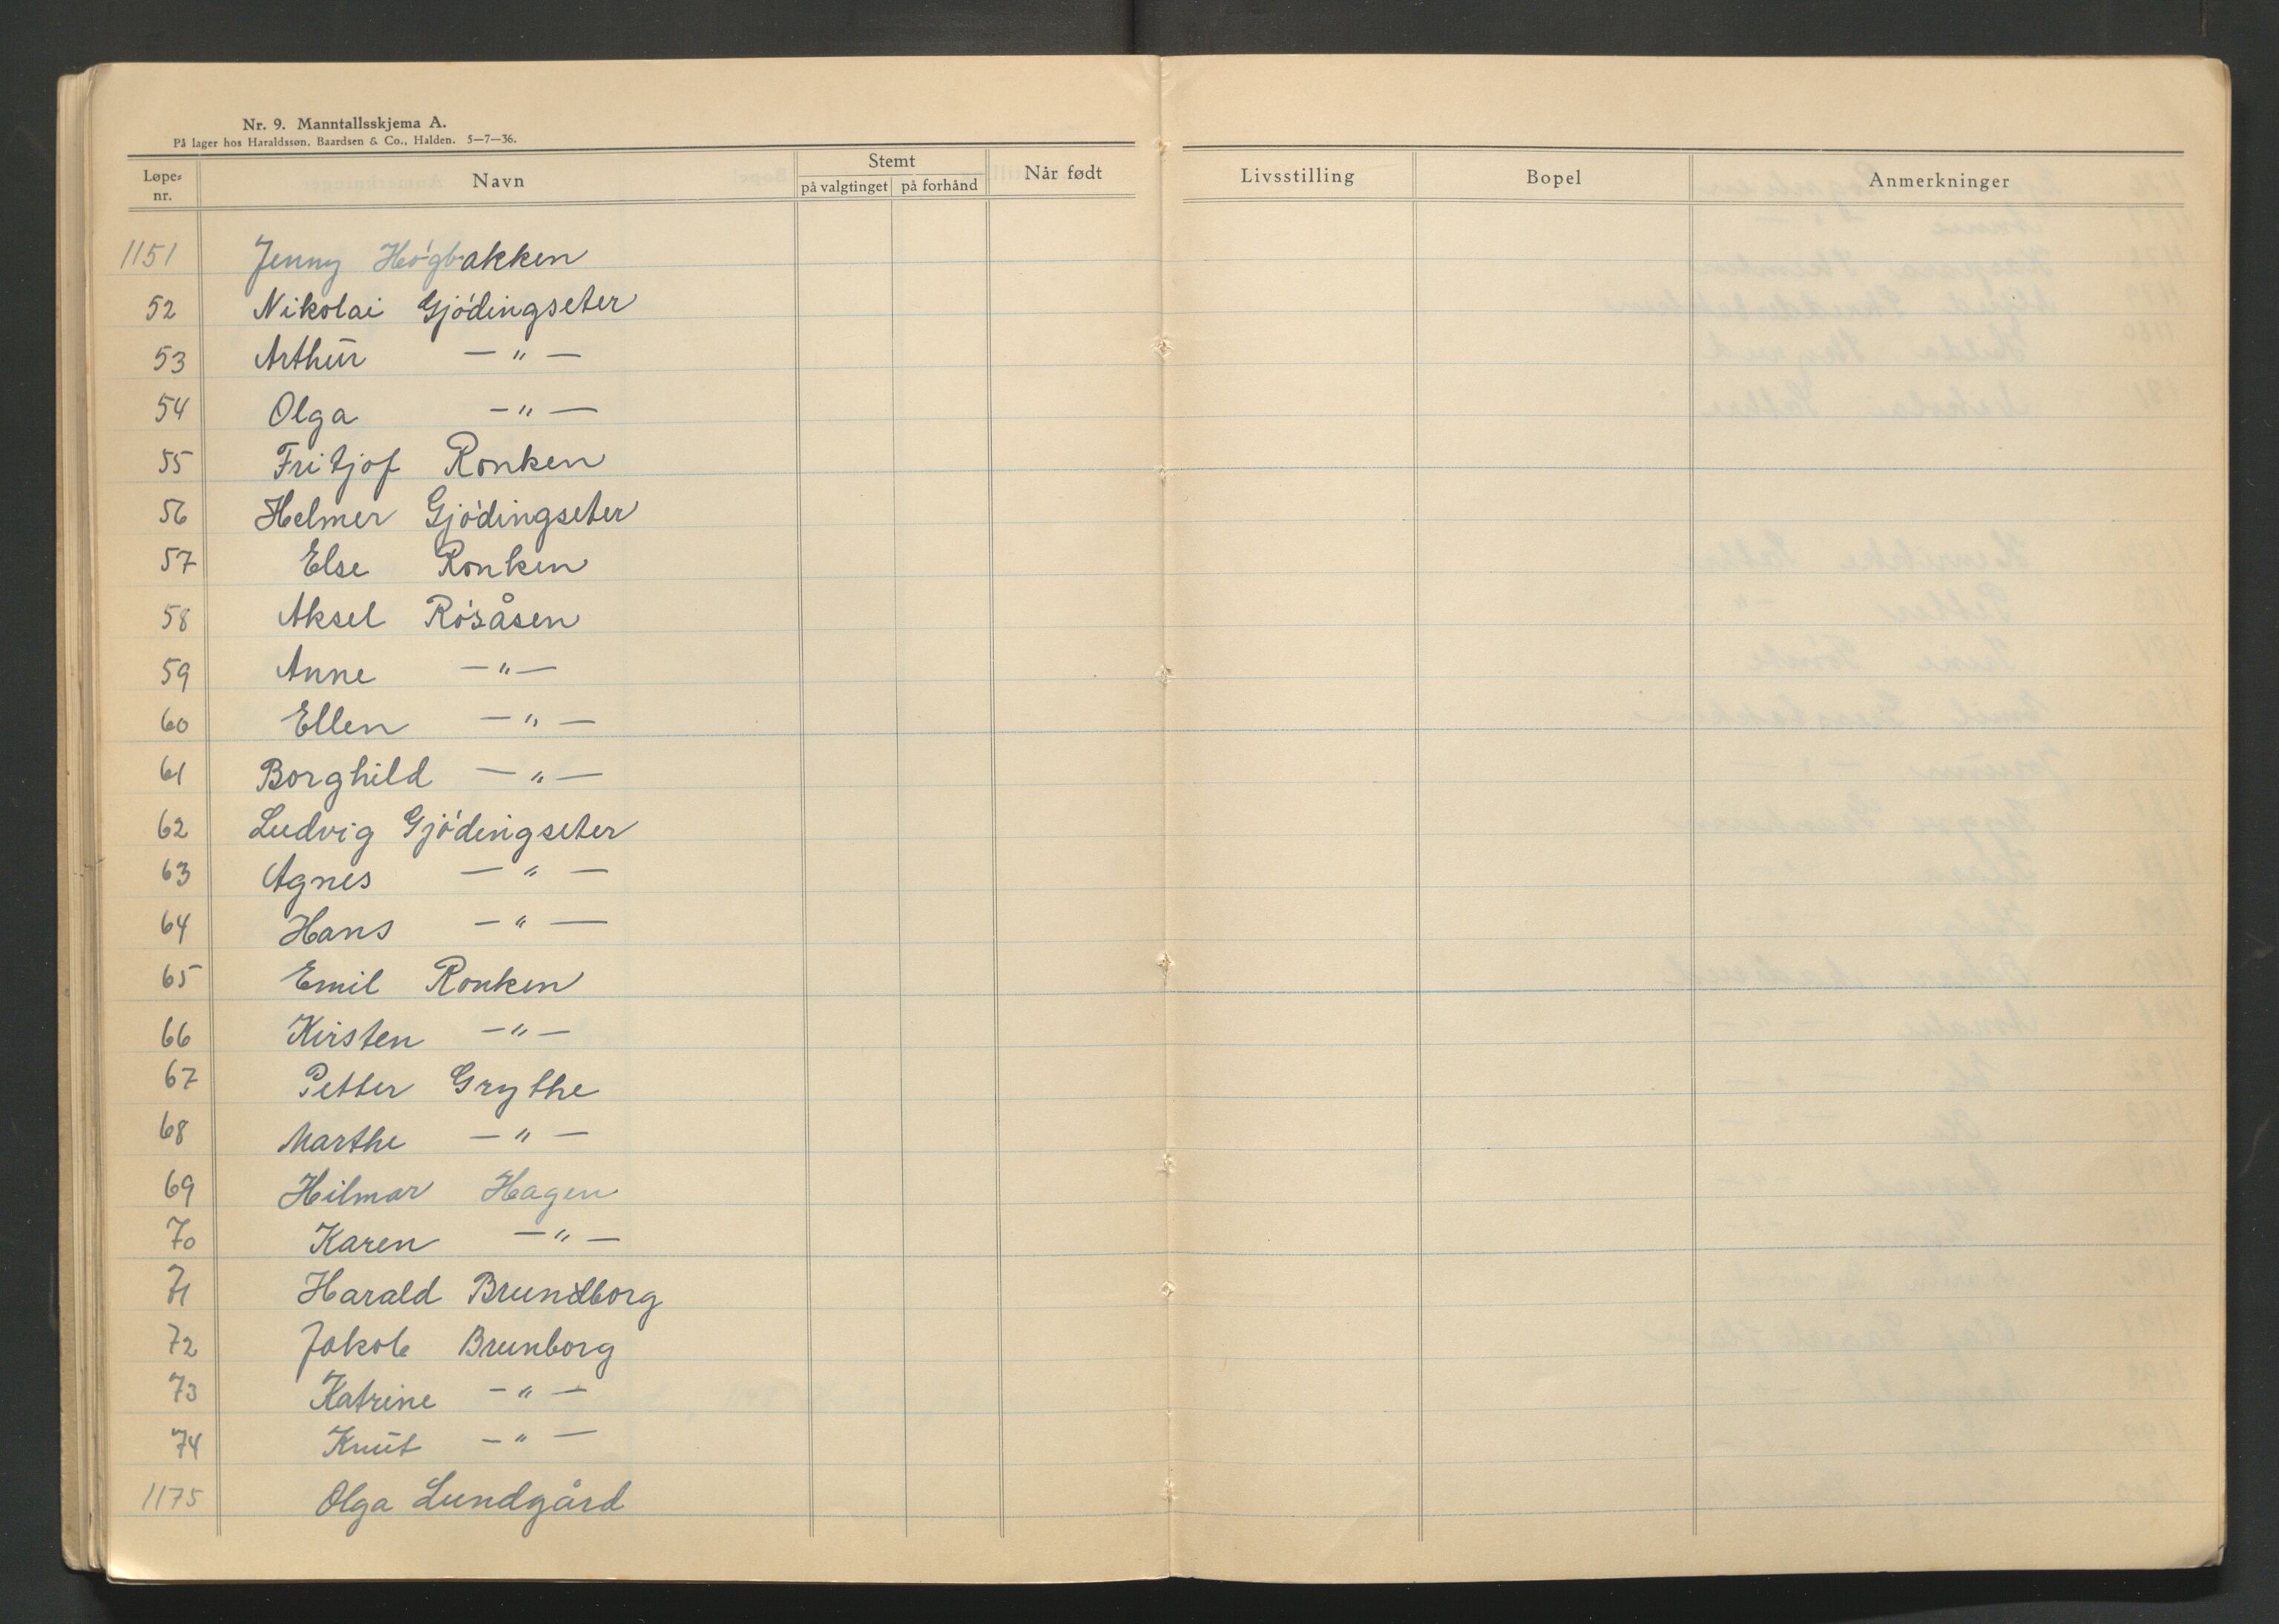 Nr. 9. Manntallsskjema A.
På lager hos Haraldssøn, Baardsen & Co., Halden. 5—7—36.
Løpe-nr. Navn Stemt på valgtinget på forhånd Når født Livsstilling Bopel Anmerkninger
1151 Jenny Høgbakken
52 Nikolai Gjødingseter
53 Arthur — " —
54 Olga — " —
55 Fritjof Ronken
56 Helmer Gjødingseter
57 Else Ronken
58 Aksel Røsåsen
59 Anne — " —
60 Ellen — " —
61 Borghild — " —
62 Ludvig Gjødingseter
63 Agnes — " —
64 Hans — " —
65 Emil Ronken
66 Kirsten — " —
67 Petter Grythe
68 Marthe — " —
69 Hilmar Hagen
70 Karen — " —
71 Harald Brunborg
72 Jakob Brunborg
73 Katrine — " —
74 Knut — " —
1175 Olga Lundgård